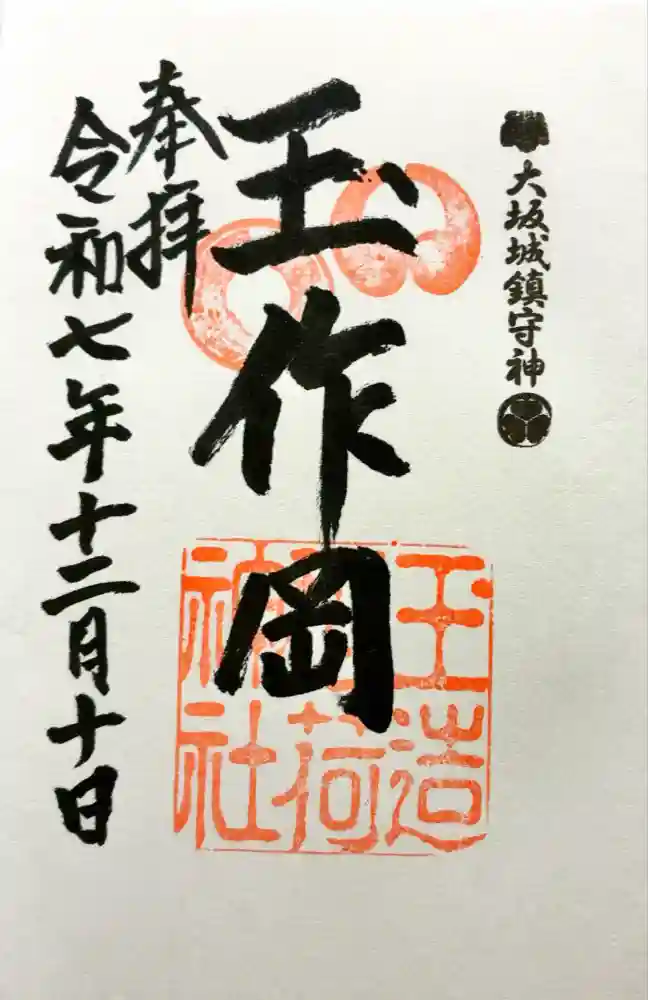 大坂城鎮守神
玉作岡
玉造
稲荷
神社
奉拝
令和七年十二月十日